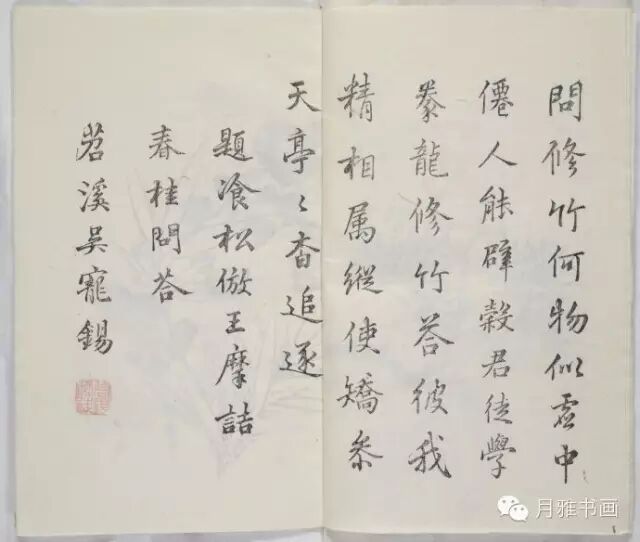 問修竹何物似虛中
僊人能辟榖君徒學
豢龍修竹答彼我
精相属縱使矯參
天亭〻杳追逐
題飡松倣王摩詰
春桂問答
苕溪吳寵錫
月雅书画